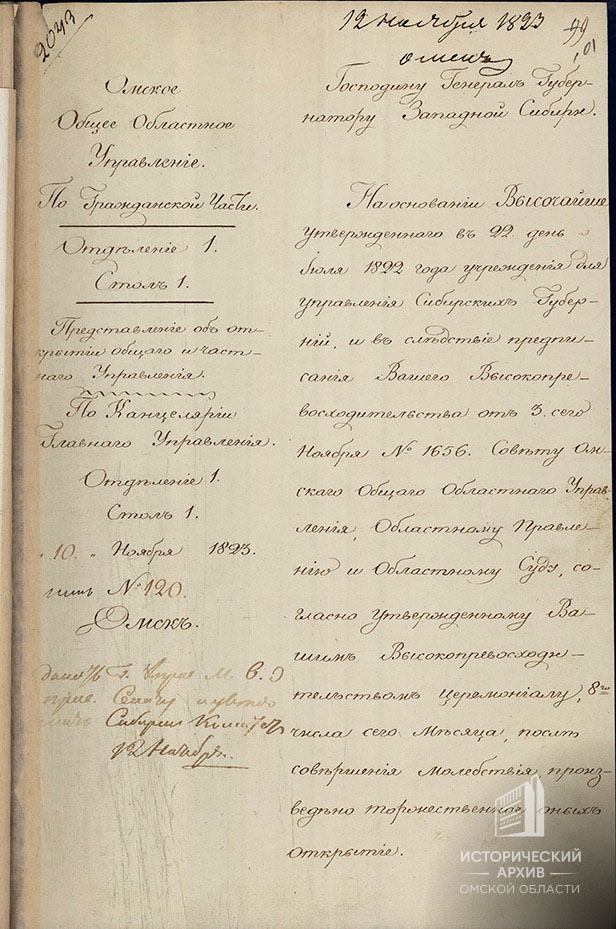 2043
12 ноября 1823
омскъ
99
101
Омское
Общее Областное
Управленіе.
По Гражданской Части.
Отдѣленіе 1.
Столъ 1.
Представленіе объ от-
крытіи общаго и част-
наго Управленія.
По Канцеляріи
Главнаго Управленія.
Отдѣленіе 1.
Столъ 1.
10. „ Ноября 1823.
№ 120.
Омскъ.
Г. М. В. Д
Сенату
Сибирск
12 Ноября.
Господину Генералъ Губер-
натору Западной Сибири.
На основаніи Высочайше
утвержденнаго въ 22. день
Іюля 1822 года учрежденія для
управленія Сибирскихъ Губер-
ній, и въ слѣдствіе предпи-
санія Вашего Высокопре-
восходительства отъ 3. сего
Ноября № 1656. Совѣту Ом-
скаго Общаго Областнаго Управ-
ленія, Областному Правле-
нію и Областному Суду, со-
гласно утвержденному Ва-
шимъ Высокопревосходи-
тельствомъ церемоніалу, 8го
числа сего Мѣсяца, послѣ
совѣршенія молебствія, произ-
ведѣно торжественное оныхъ
открытіе.
ИСТОРИЧЕСКИЙ
АРХИВ
ОМСКОЙ ОБЛАСТИ